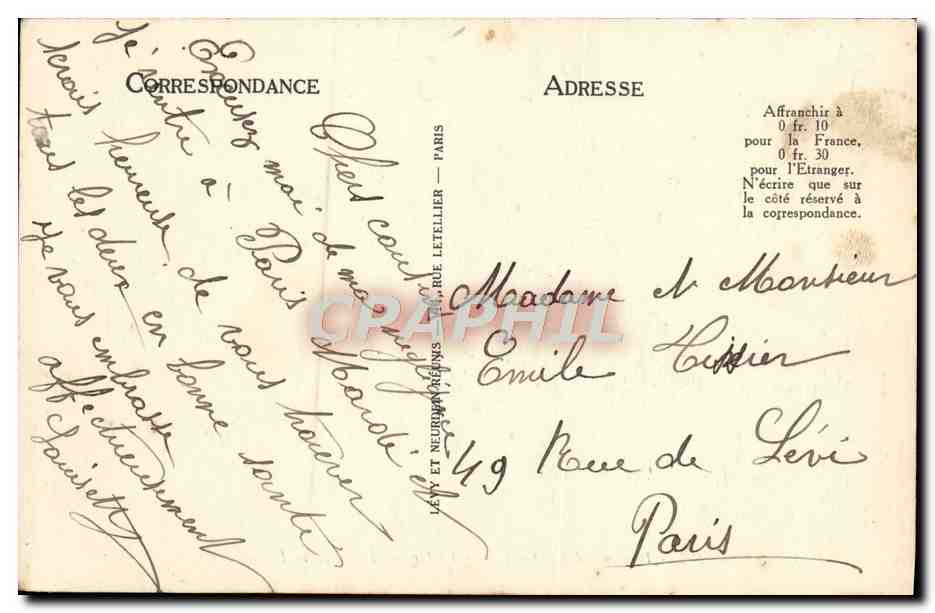 CORRESPONDANCE
ADRESSE
Affranchir à
0 fr. 10
pour la France,
0 fr. 30
pour l'Etranger.
N'écrire que sur
le côté réservé à
la correspondance.
LÉVY ET NEURDEIN RÉUNIS RUE LETELLIER — PARIS
Chers
Excusez moi de ma négligence
je rentre à Paris Mardi et
serais heureuse de vous trouver
tous les deux en bonne santé
Je vous embrasse
affectueusement
Madame et Monsieur
Emile Tissier
49 Rue de Lévi
Paris
CPAPHIL